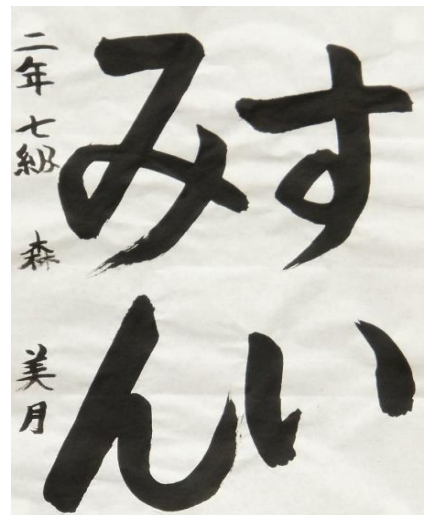 すい
みん
二年 七級 森 美月